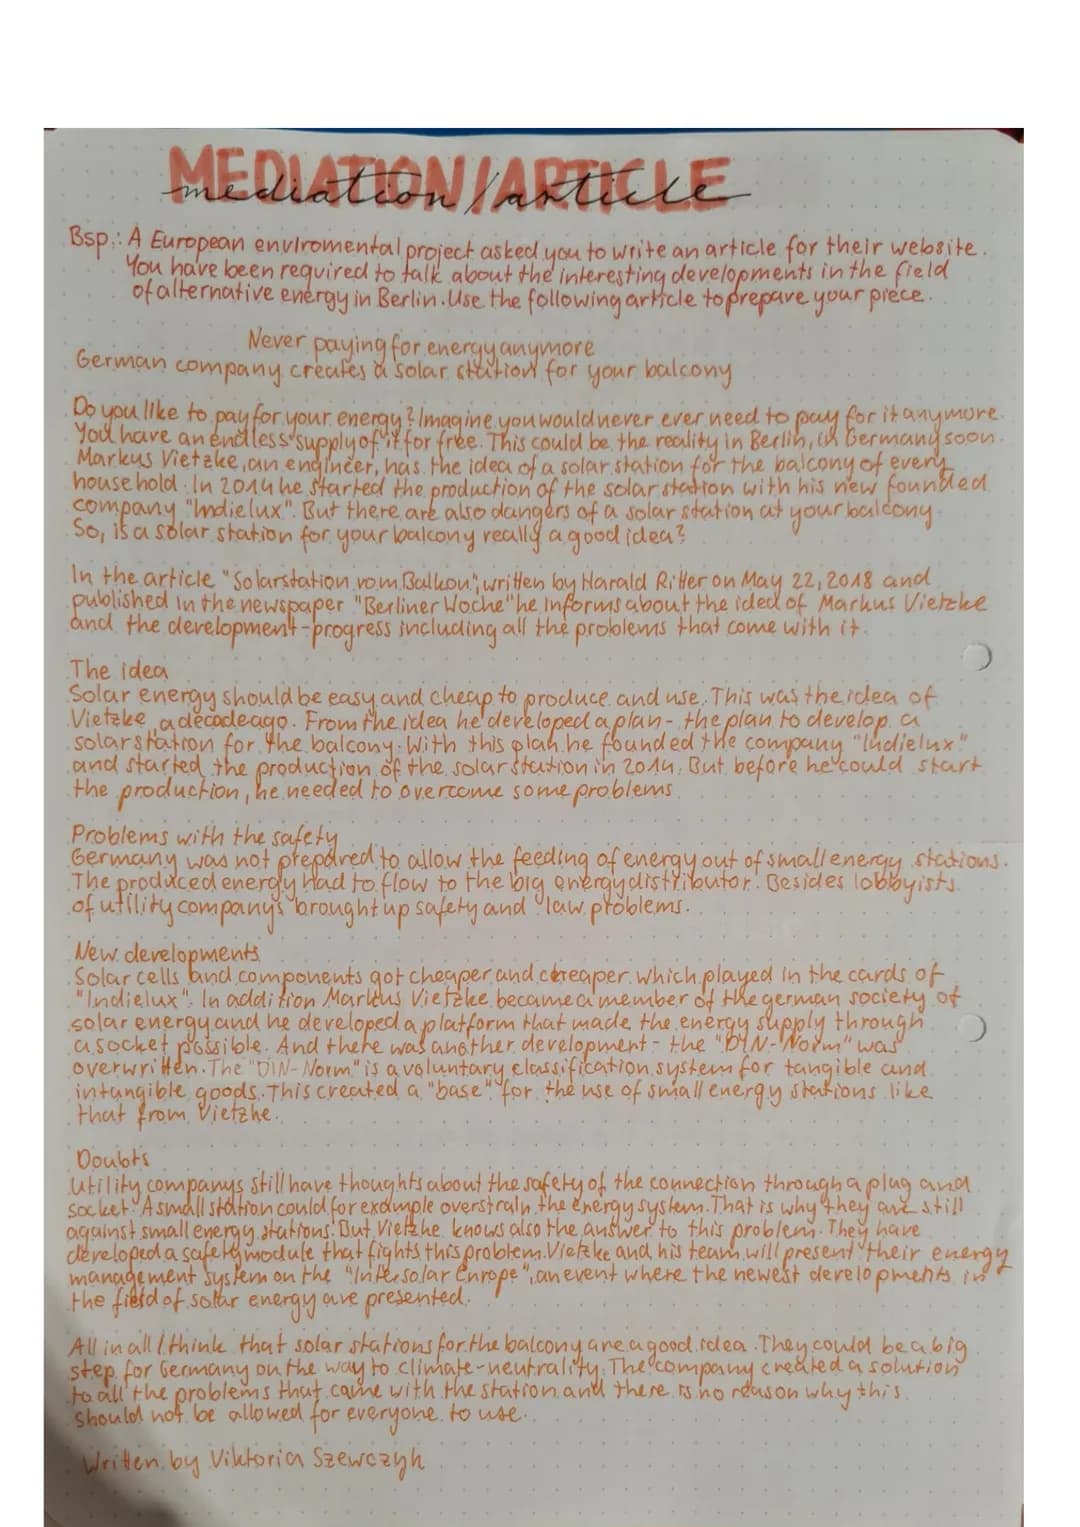 MEDIATION/ARTICLE
mediation/article
Bsp.: A European enviromental project asked you to write an article for their website.
You have been required to talk about the interesting developments in the field
of alternative energy in Berlin. Use the following article to prepare your piece.
Never paying for energy anymore
German company creates a solar station for your balcony
Do you like to pay for your energy? Imagine you would never ever need to pay for it anymore.
You have an endless supply of it for free. This could be the reality in Berlin, in Germany soon.
Markus Vietzke, an engineer, has the idea of a solar station for the balcony of every
household. In 2014 he started the production of the solar station with his new founded
company "Indielux". But there are also dangers of a solar station at your balcony
So, is a solar station for your balcony really a good idea?
In the article "Solarstation vom Balkon", written by Harald Ritter on May 22, 2018 and
published in the newspaper "Berliner Woche" he informs about the idea of Markus Vietzke
and the development-progress including all the problems that come with it.
The idea
Solar energy should be easy and cheap to produce and use. This was the idea of
Vietzke a decade ago. From the idea he developed a plan - the plan to develop a
solar station for the balcony. With this plan he founded the company "Indielux"
and started the production of the solar station in 2014. But before he could start
the production, he needed to overcome some problems.
Problems with the safety
Germany was not prepared to allow the feeding of energy out of small energy stations.
The produced energy had to flow to the big energy distributor. Besides lobbyists
of utility companys brought up safety and law problems.
New developments
Solar cells and components got cheaper and cheaper which played in the cards of
"Indielux". In addition Markus Vietzke became a member of the german society of
solar energy and he developed a platform that made the energy supply through
a socket possible. And there was another development - the "DIN-Norm" was
overwritten. The "DIN-Norm" is a voluntary classification system for tangible and
intangible goods. This created a "base" for the use of small energy stations like
that from Vietzke.
Doubts
Utility companys still have thoughts about the safety of the connection through a plug and
socket. A small station could for example overstrain the energy system. That is why they are still
against small energy stations. But Vietzke knows also the answer to this problem. They have
developed a safety module that fights this problem. Vietzke and his team will present their energy
management system on the "Intersolar Europe", an event where the newest developments in
the field of solar energy are presented.
All in all I think that solar stations for the balcony are a good idea. They could be a big
step for Germany on the way to climate-neutrality. The company created a solution
to all the problems that came with the station and there is no reason why this
should not be allowed for everyone to use.
Written by Viktoria Szewczyk